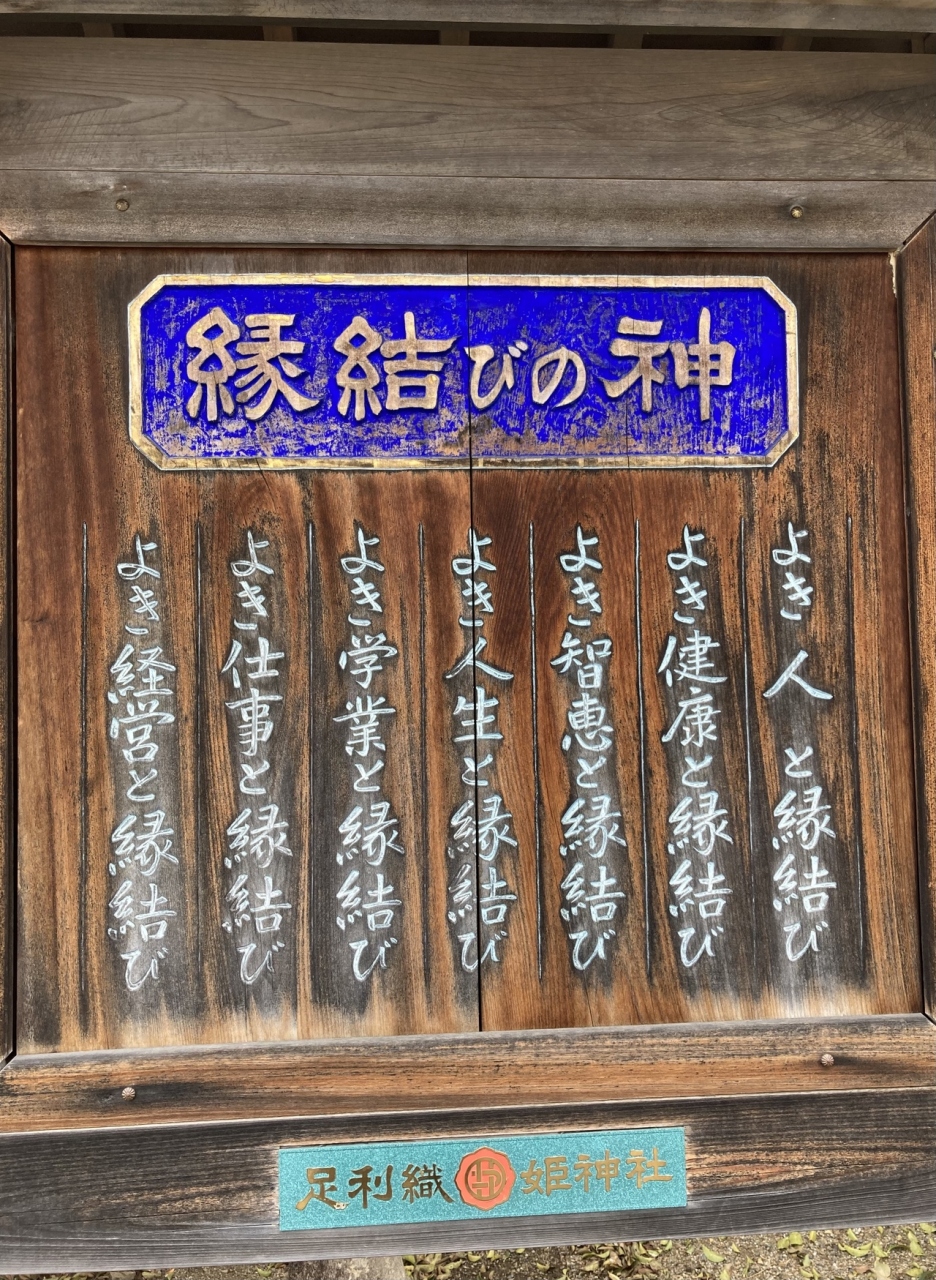 縁結びの神
よき人と縁結び
よき健康と縁結び
よき智恵と縁結び
よき人生と縁結び
よき学業と縁結び
よき仕事と縁結び
よき経営と縁結び
足利織姫神社